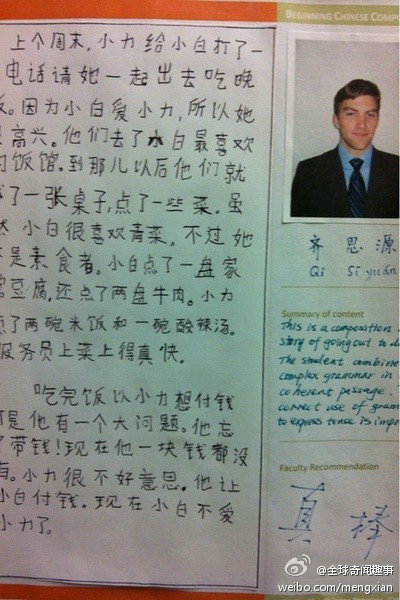 上个周末，小力给小白打了一
电话请她一起出去吃晚
因为小白爱小力，所以她
高兴。他们去了小白最喜欢
饭馆。到那儿以后他们就
了一张桌子，点了一些菜。虽
小白很喜欢青菜，不过她
是素食者。小白点了一盘家
豆腐，还点了两盘牛肉。小力
了两碗米饭和一碗酸辣汤。
服务员上菜上得真快。
吃完饭以小力想付钱
是他有一个大问题。他忘
了带钱！现在他一块钱都没
小力很不好意思。他让
小白付钱。现在小白不爱
小力了。
BEGINNING CHINESE COMPO
齐思源
Qi Sīyuán
Summary of content
This is a composition
story of going out to di
The student combine
complex grammar in
coherent passage.
correct use of gram
to express tense is impr
Faculty Recommendation
真棒
@全球奇闻趣事
weibo.com/mengxian